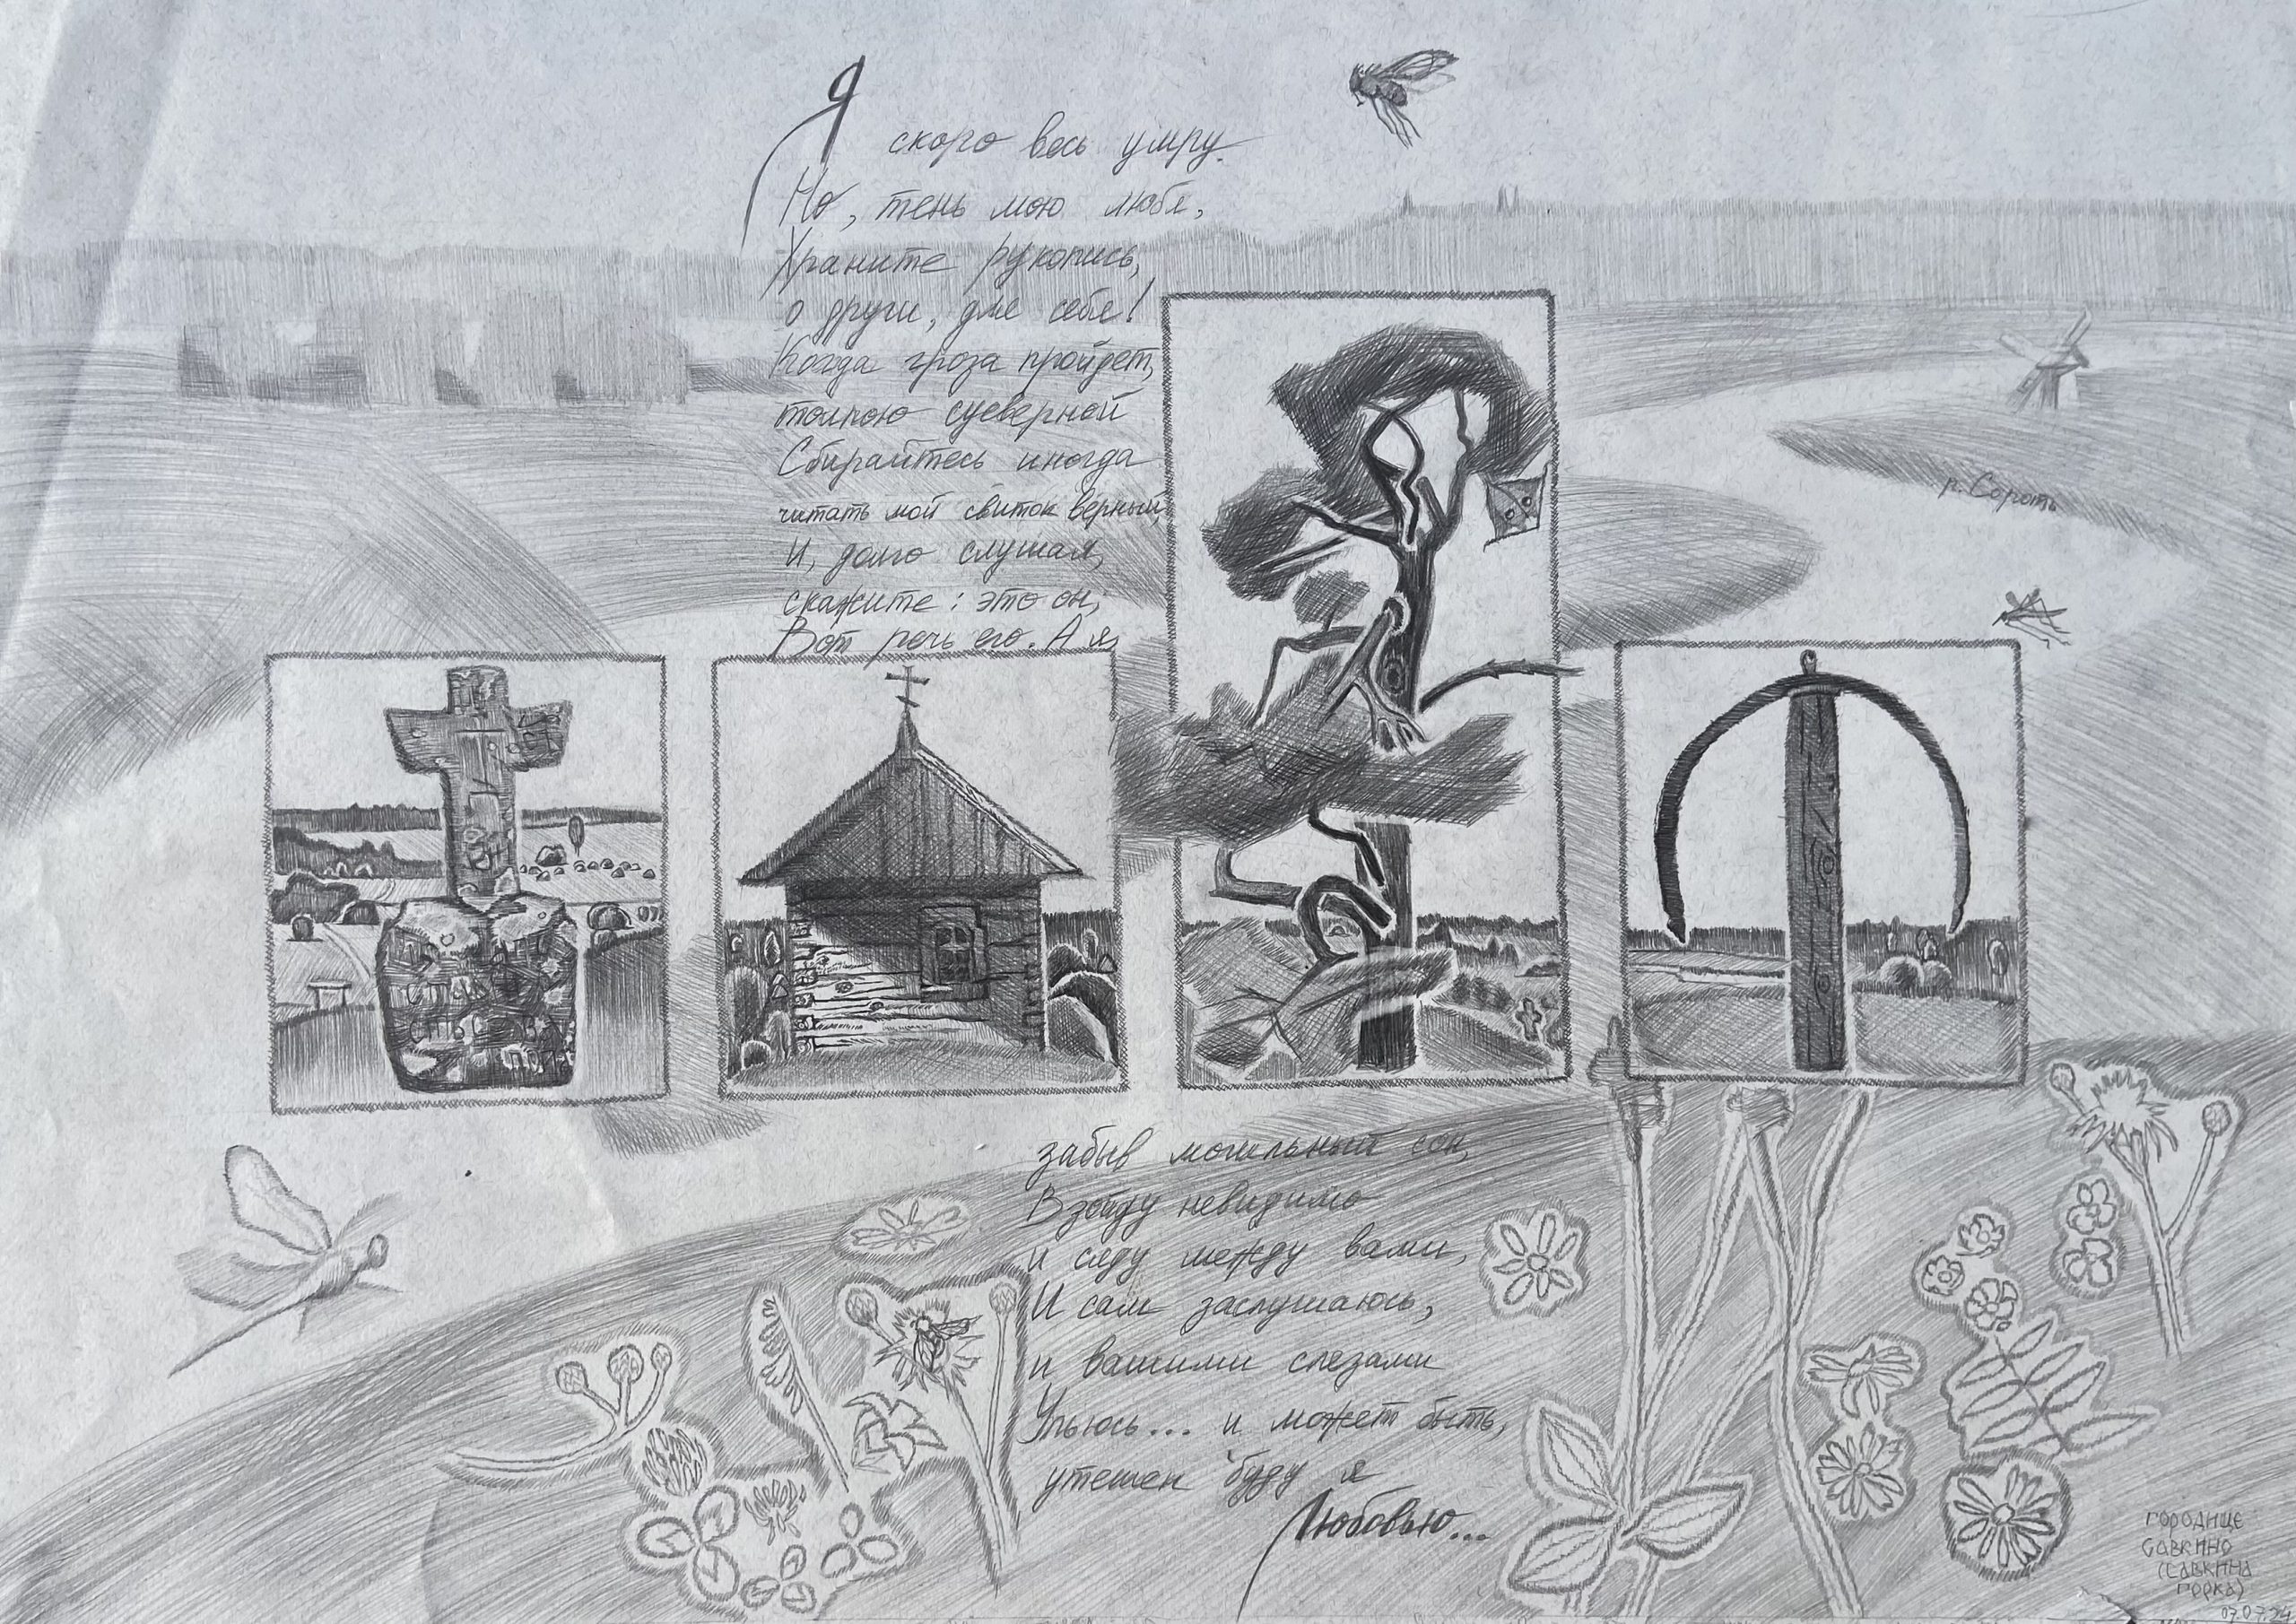 Я скоро весь умру.
Но, тень мою любя,
Храните рукопись,
о други, для себя!
Когда гроза пройдет,
толпою суеверной
Сбирайтесь иногда
читать мой свиток верный,
И, долго слушая,
скажите: это он;
Вот речь его. А я,
р. Сороть
забыв могильный сон,
Взойду невидимо
и сяду между вами,
И сам заслушаюсь,
и вашими слезами
Упьюсь... и может быть,
утешен буду я
Любовью...
ГОРОДИЩЕ
САВКИНО
(САВКИНА
ГОРКА)